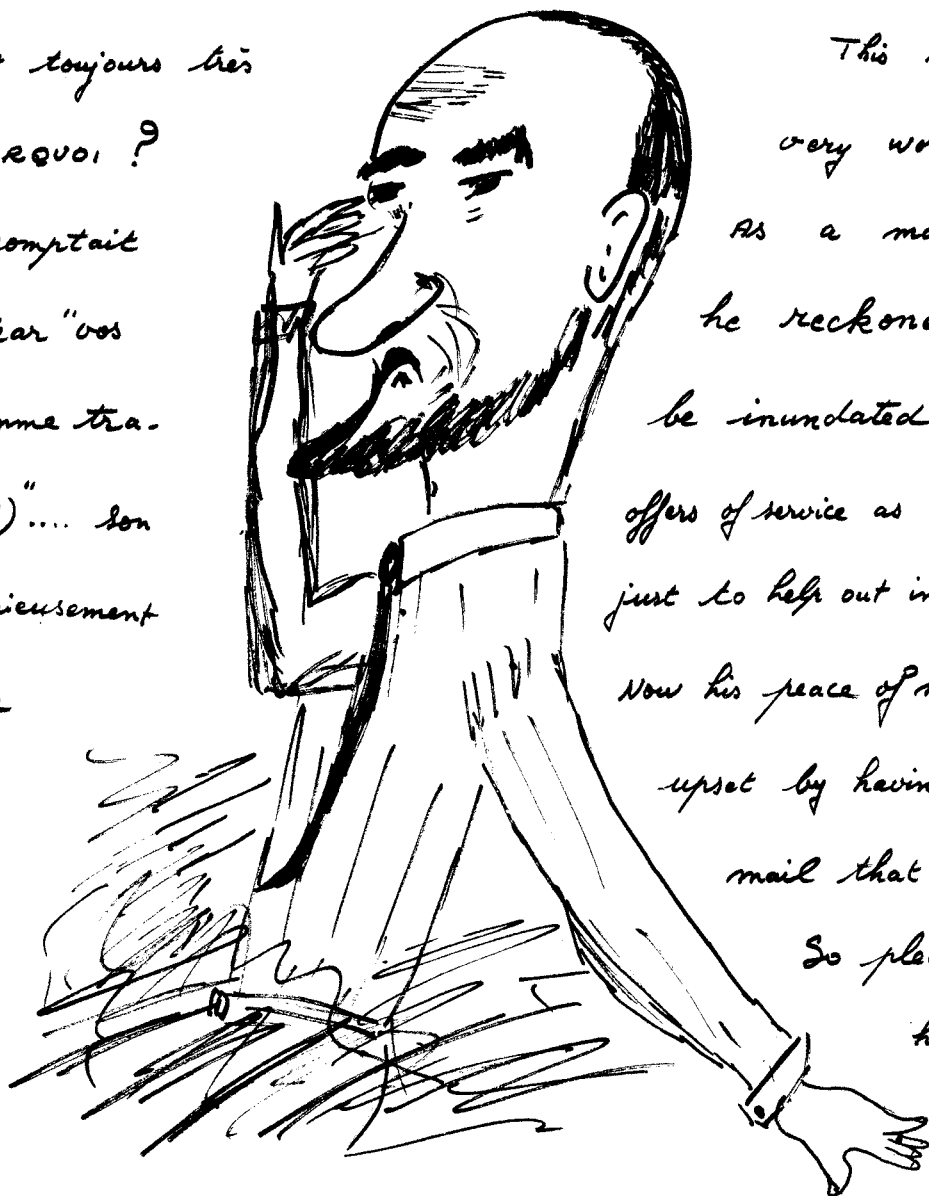 toujours très
RQUOI ?
comptait
par "vos
mme tra-
)".... son
rieusement
This
very wo
As a ma
he reckone
be inundated
offers of service as
just to help out in
Now his peace of m
upset by havin
mail that
So plea
h